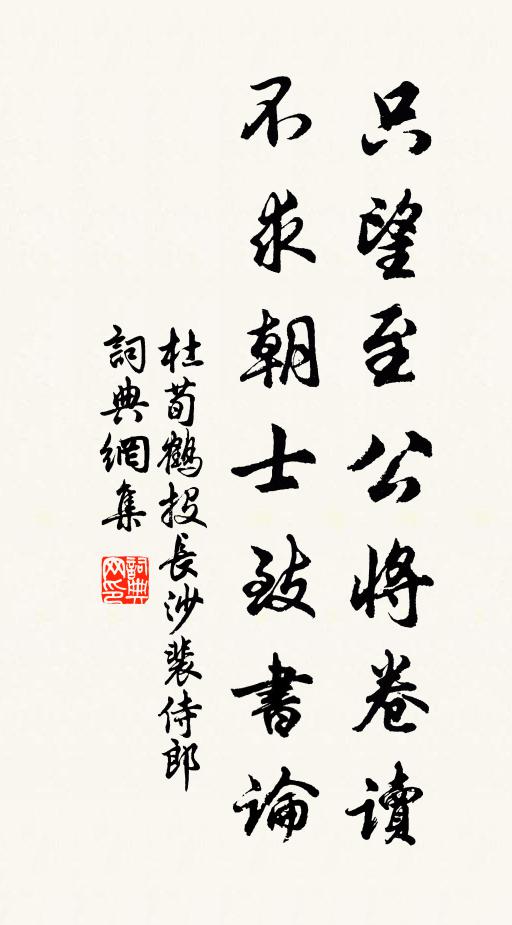 只望至公將卷讀
不求朝士致書論
杜荀鶴投長沙裴侍郎
詞典網集
詞典网印